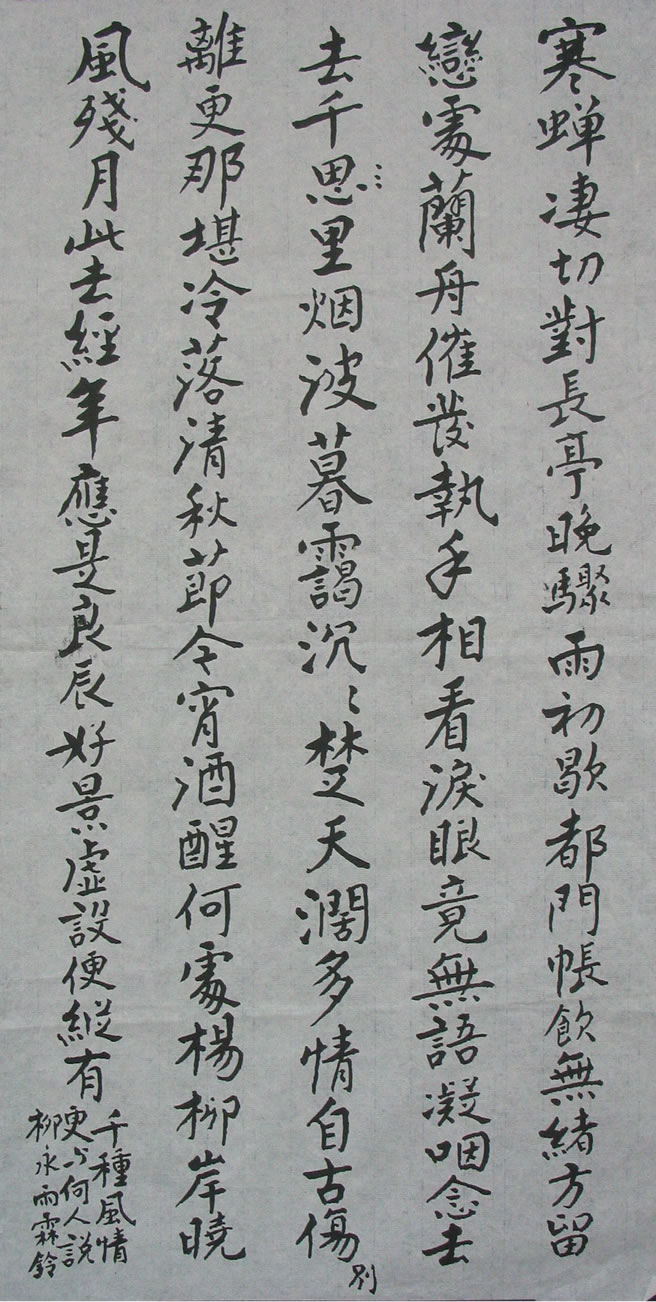 寒蝉凄切對長亭晚驟雨初歇都門帳飲無緒方留
戀處蘭舟催發執手相看淚眼竟無語凝咽念去
去千思里烟波暮靄沉〻楚天濶多情自古傷别
離更那堪冷落清秋節今宵酒醒何處楊柳岸曉
風殘月此去經年應是良辰好景虛設便縱有
千種風情
更与何人説
柳永雨霖鈴